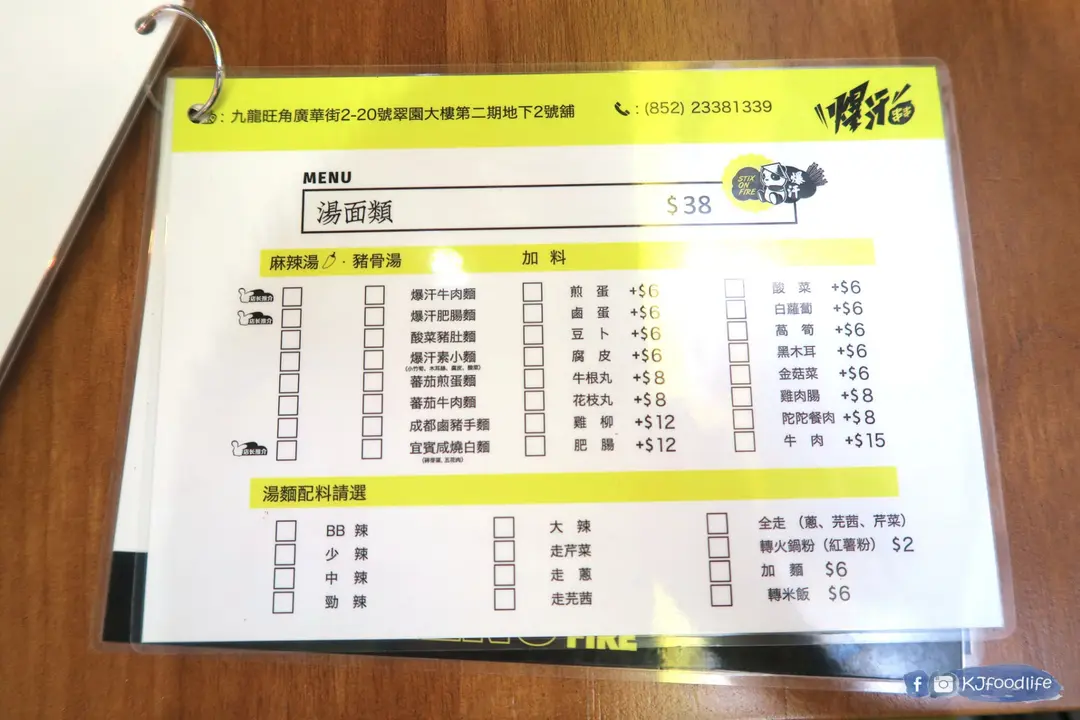 : 九龍旺角廣華街2-20號翠園大樓第二期地下2號舖
: (852) 23381339
爆汗
MENU
湯面類 $38
STIX ON FIRE
爆汗
麻辣湯 · 豬骨湯
加料
店長推介 爆汗牛肉麵
店長推介 爆汗肥腸麵
酸菜豬肚麵
爆汗素小麵
蕃茄煎蛋麵
蕃茄牛肉麵
成都鹵豬手麵
店長推介 宜賓咸燒白麵
煎蛋 +$6
鹵蛋 +$6
豆卜 +$6
腐皮 +$6
牛根丸 +$8
花枝丸 +$8
雞柳 +$12
肥腸 +$12
酸菜 +$6
白蘿蔔 +$6
萵筍 +$6
黑木耳 +$6
金菇菜 +$6
雞肉腸 +$8
陀陀餐肉 +$8
牛肉 +$15
湯麵配料請選
BB 辣
少辣
中辣
勁辣
大辣
走芹菜
走蔥
走芫茜
全走（蔥、芫茜、芹菜）
轉火鍋粉（紅薯粉） $2
加麵 $6
轉米飯 $6
FIRE
KJfoodlife